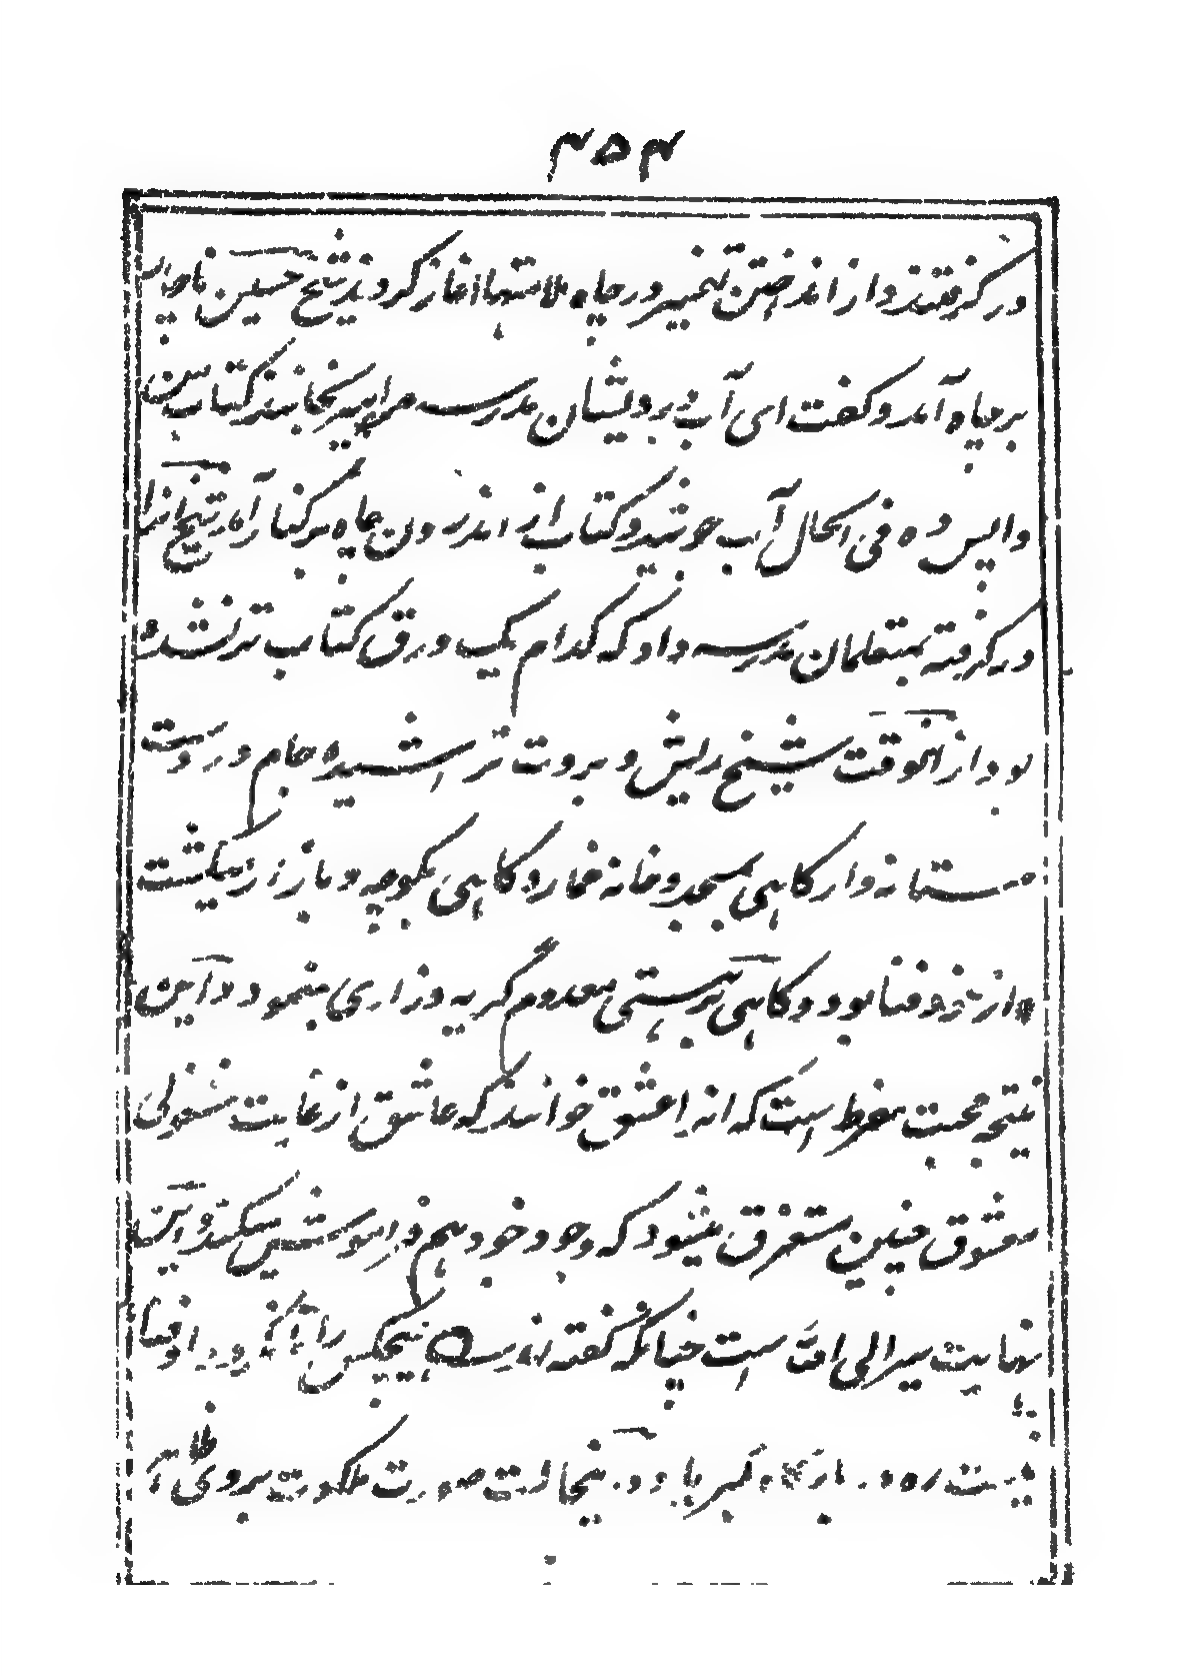 ۴۵۴
در گرفتند و از انداختن خمیر در چاه ملامتها آغاز کردند شیخ حسین
بر چاه آمد و گفت ای آب درویشان مدرسه مرا نمیرنجانند کتاب من
واپس ده فی الحال آب جوشید و کتاب از اندرون چاه بر کنار آمد شیخ آنرا
در گرفته بمتعلمان مدرسه داد که کدام یک ورق کتاب تر نشده
بود از آنوقت شیخ ریش و بروت تراشیده جام در دست
مستانه وار گاهی بمسجد و خانه خمار و گاهی بکوچه و بازار میگشت
از خود فنا بود و گاهی بر هستی معدوم گریه و زاری مینمود و این
نتیجه محبت مفرط است که انرا عشق خوانند که عاشق از غایت مشغولی
معشوق چنین مستغرق میشود که وجود خود هم فراموش میکند و این
نهایت سیر الی الله است چنانکه گفته اند هیچکس را تا نگردد او فنا
نیست ره در بارگاه کبریا و در نیحالت صورت ملکوت بروی ظاهر